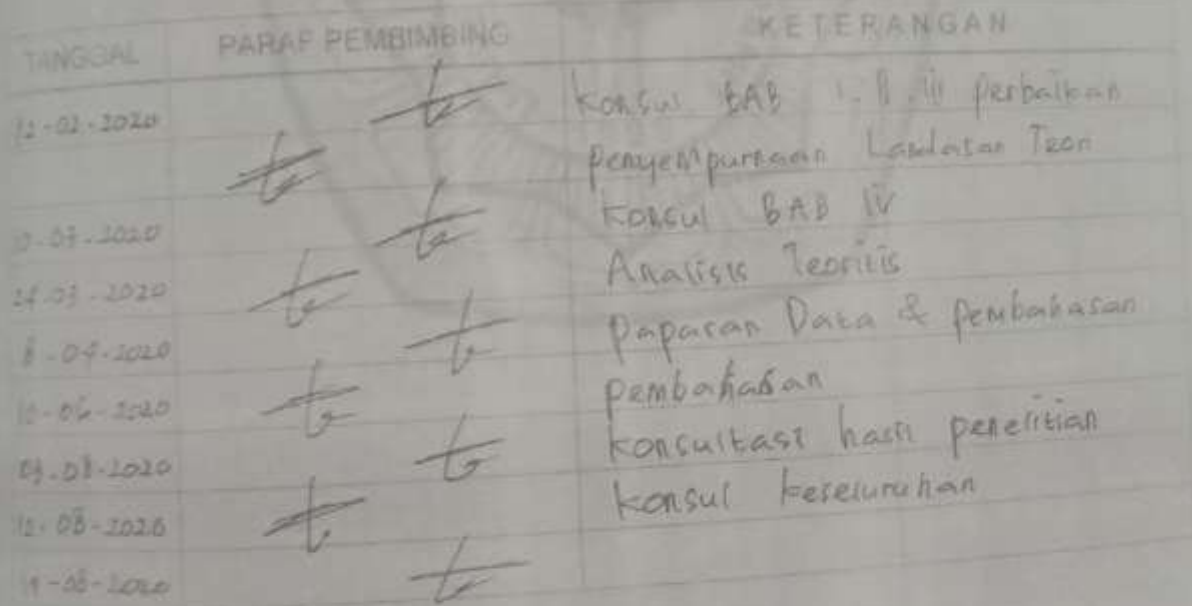 TANGGAL PARAF PEMBIMBING KETERANGAN
12-02-2020 Konsul BAB I. II. III perbaikan
penyempurnaan Landasan Teori
-03-2020 Konsul BAB IV
24-03-2020 Analisis Teoritis
8-04-2020 Paparan Data & Pembahasan
10-06-2020 pembahasan
03-08-2020 konsultasi hasil penelitian
12-08-2020 konsul keseluruhan
-08-2020